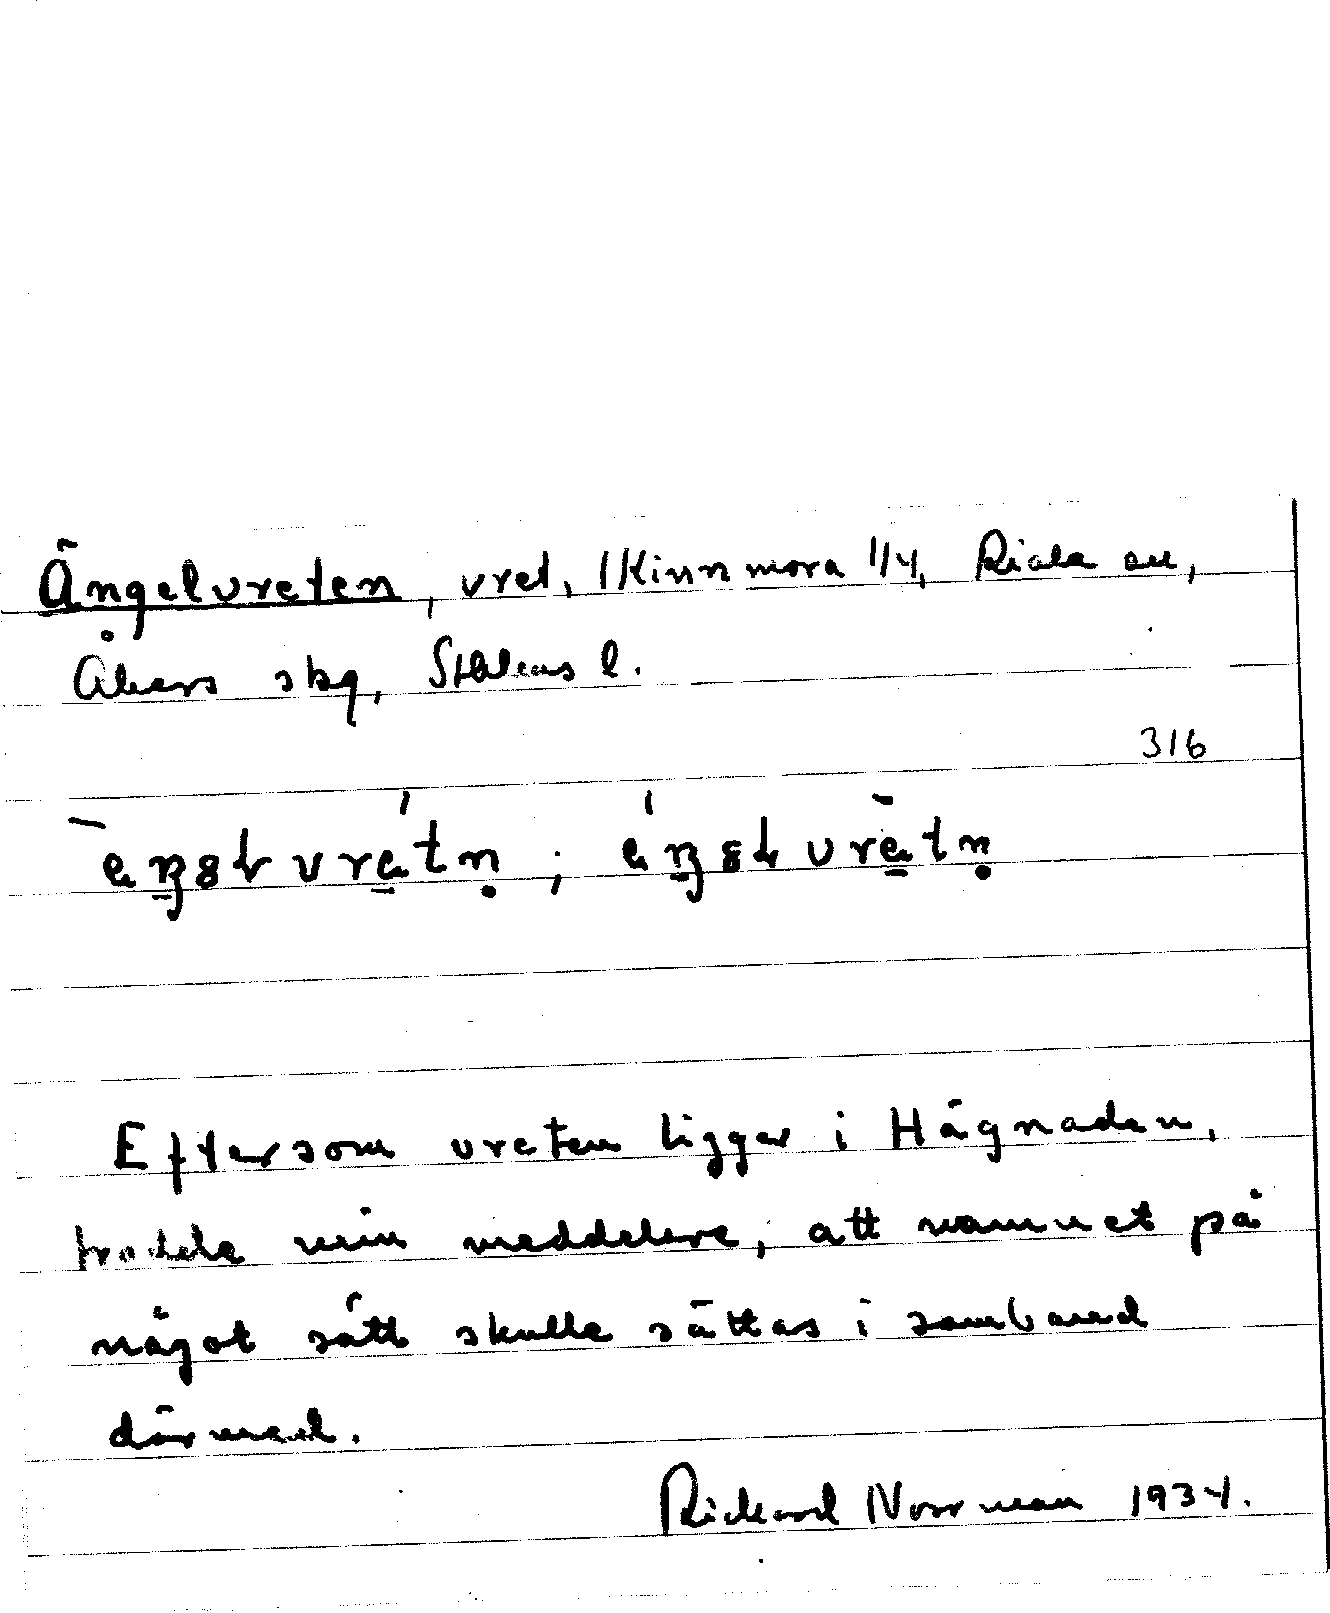 Ängelvreten, vret, Kinnmora 1/4, Riala sn,
Åkers skg, Sthlms l.
316
Eftersom vreten ligger i Hägnaden,
trodde min meddelare, att namnet på
något sätt skulle sättas i samband
därmed.
Rickard Norrman 1934.